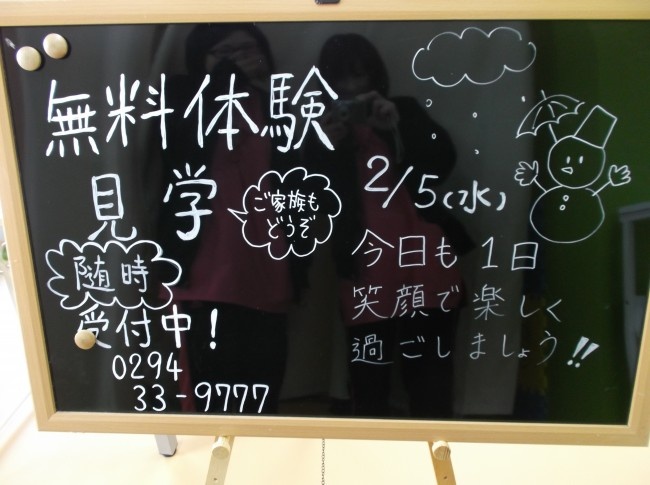 無料体験
見学
ご家族も
どうぞ
随時
受付中!
0294
33-9777
2/5(水)
今日も1日
笑顔で楽しく
過ごしましょう!!